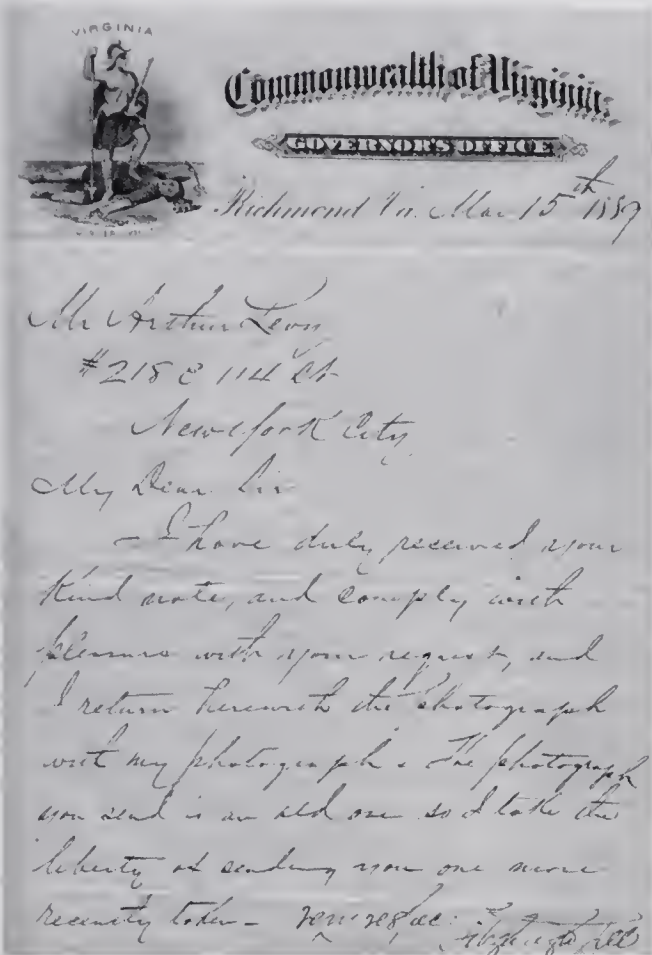 VIRGINIA
Commonwealth of Virginia,
GOVERNOR'S OFFICE
Richmond Va. Mar 15th 1889
Mr Arthur Levy
#218 E 114 St
New York City
My Dear Sir
– I have duly received your
kind note, and comply with
pleasure with your request, and
I return herewith the photograph
with my photograph. The photograph
you send is an old one so I take the
liberty of sending you one more
recently taken –
Fitzhugh Lee